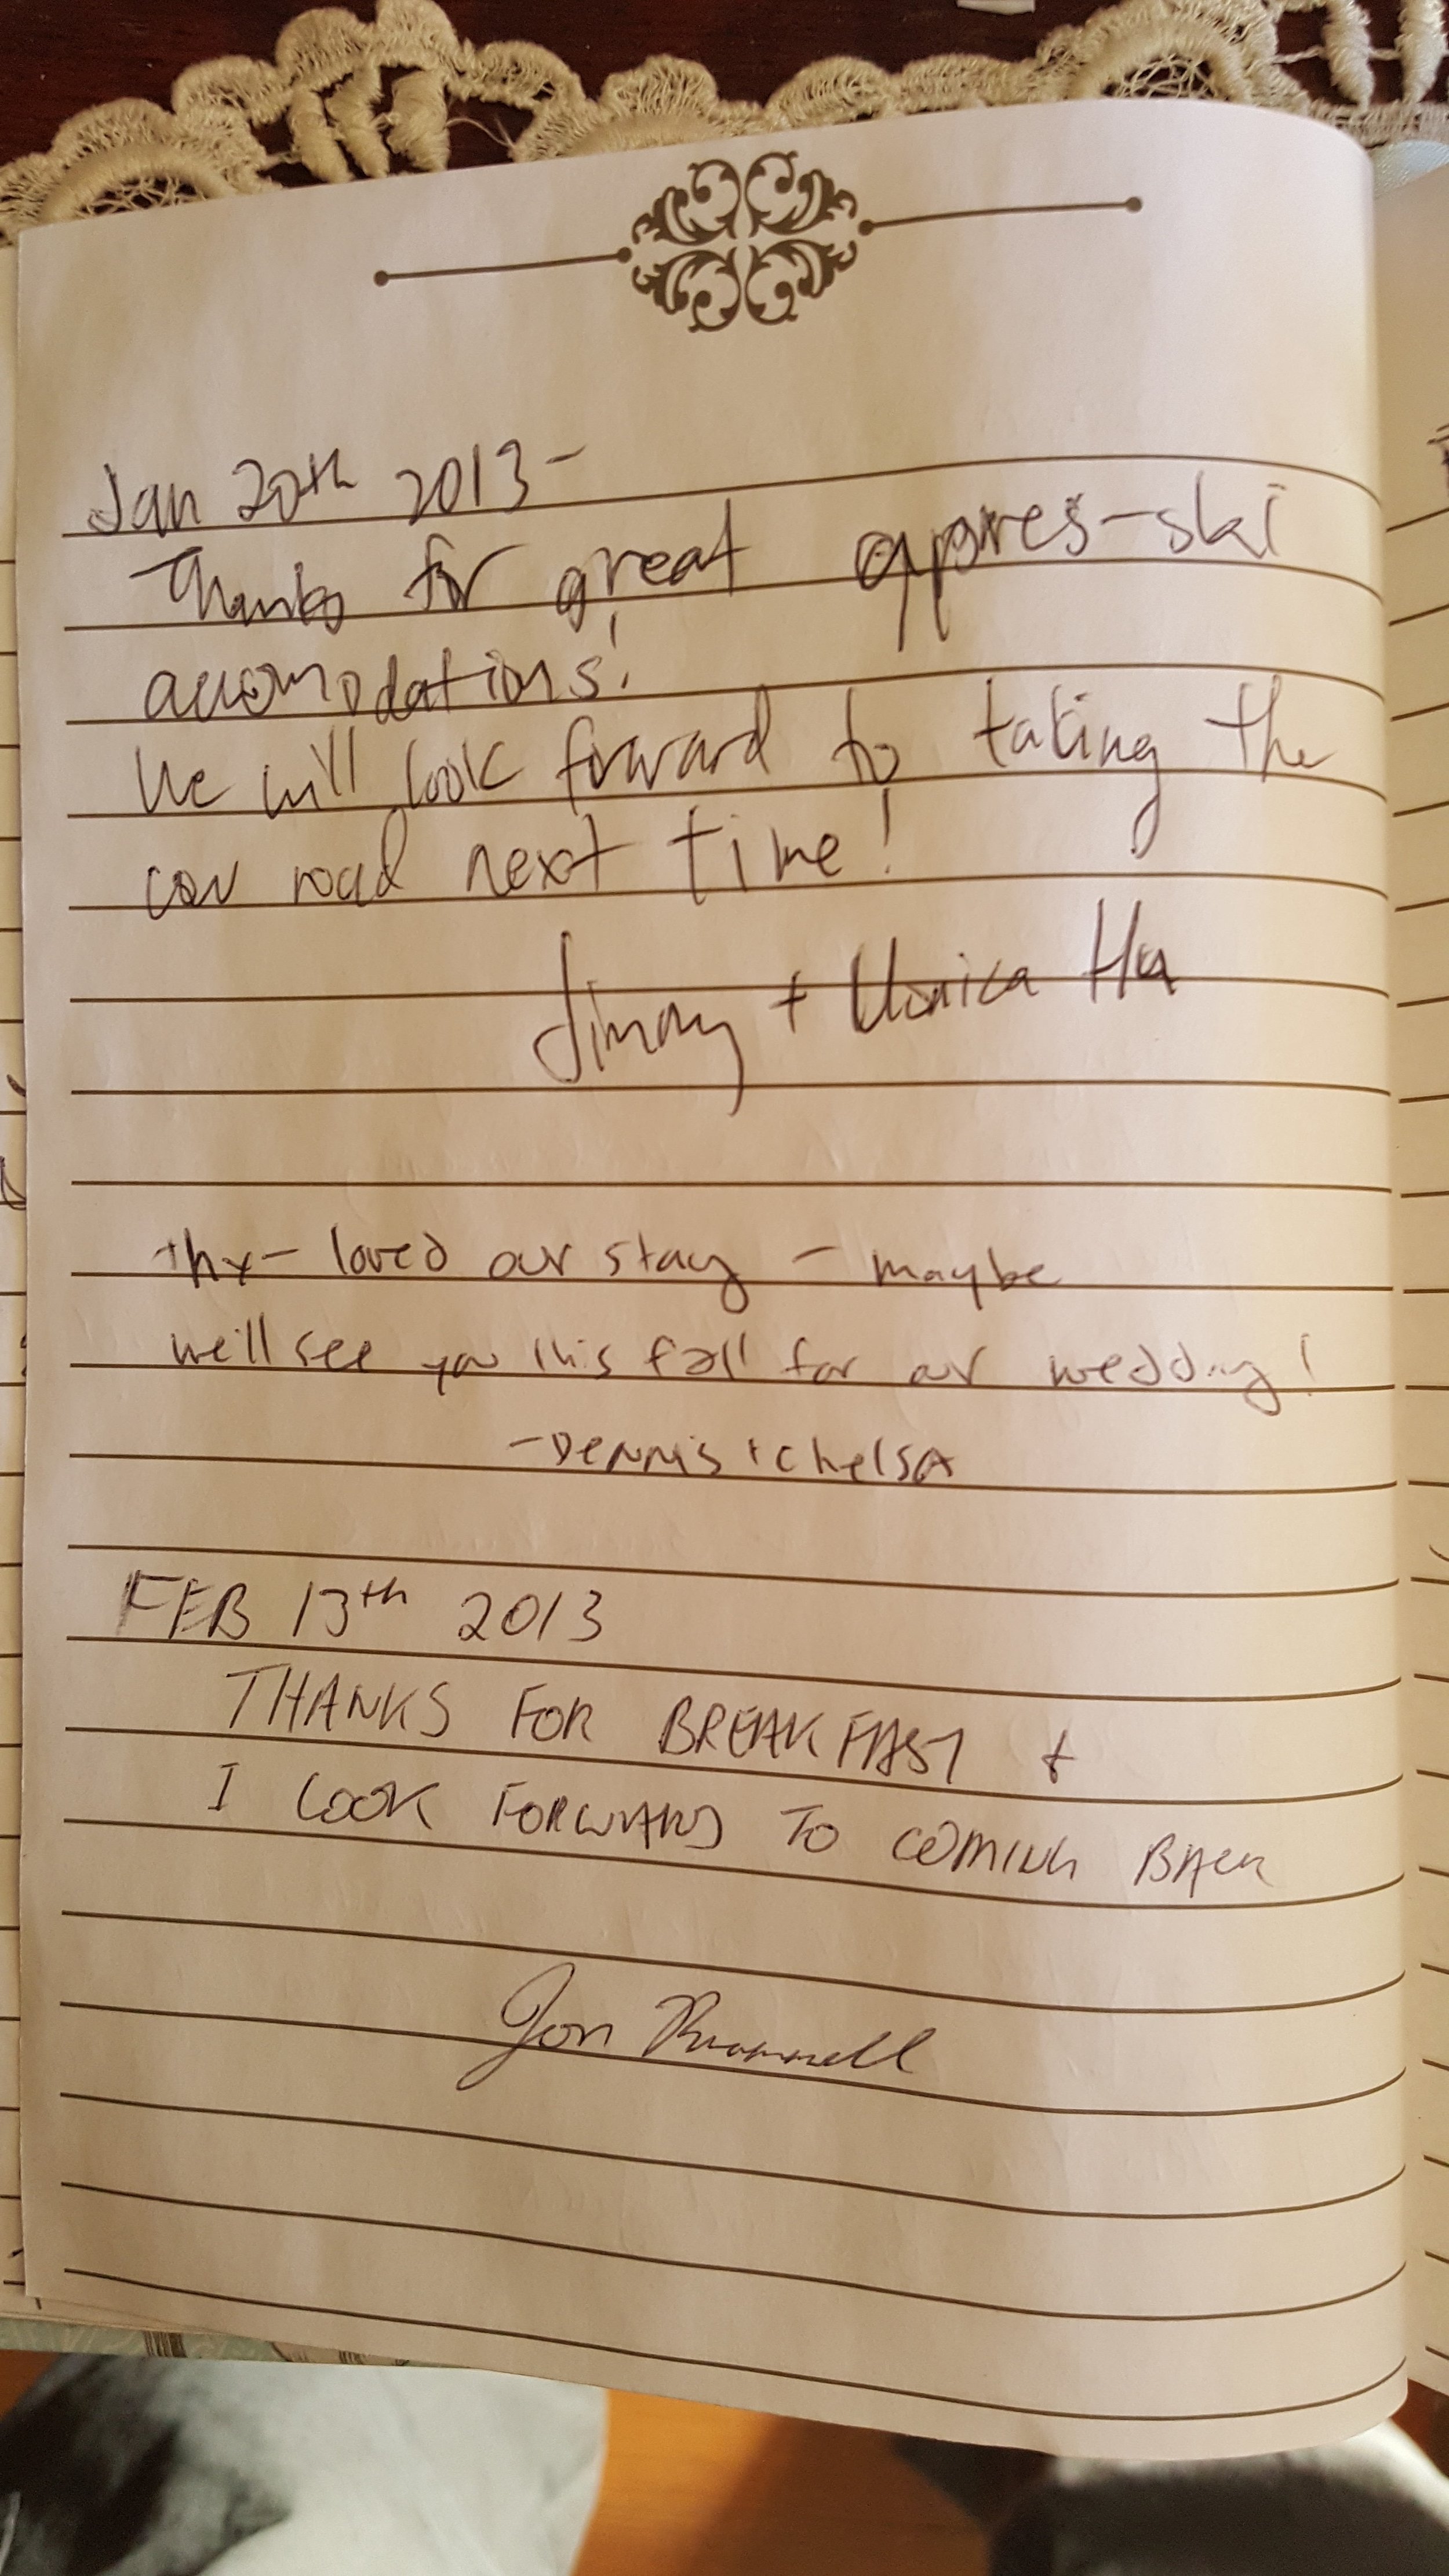 Jan 20th 2013-
Thanks for great appres-ski
accomodations!
We will look forward to taking the
car road next time!
Jimmy +
thx- loved our stay - maybe
we'll see you this fall for our wedding!
-Dennis + Chelsa
FEB 13th 2013
THANKS FOR BREAKFAST +
I LOOK FORWARD TO COMING BACK
Jon